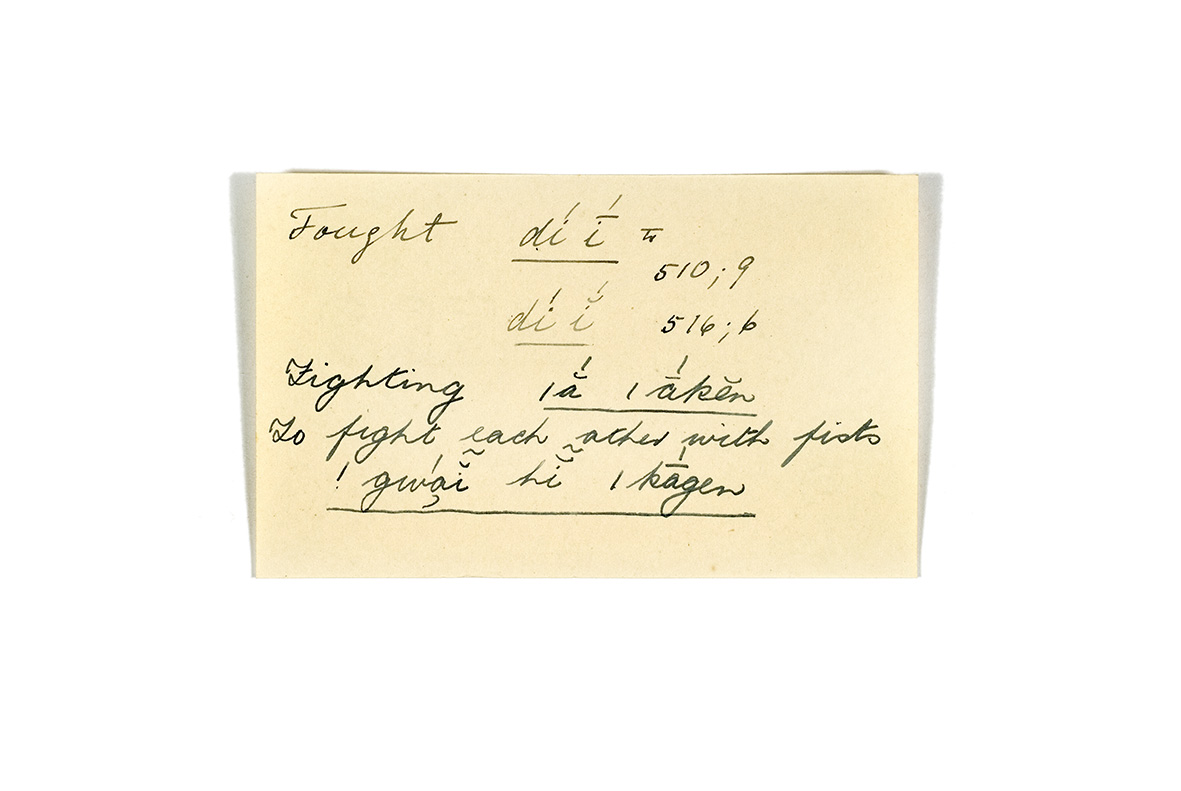 Fought dí ī́ IV
510 ; 9
dí ĭ́ 516 ; 6
Fighting |ā̆́ |ā́kĕn
To fight each other with fists
! gwą́ĭ̃ hĭ̃ |kā́gen